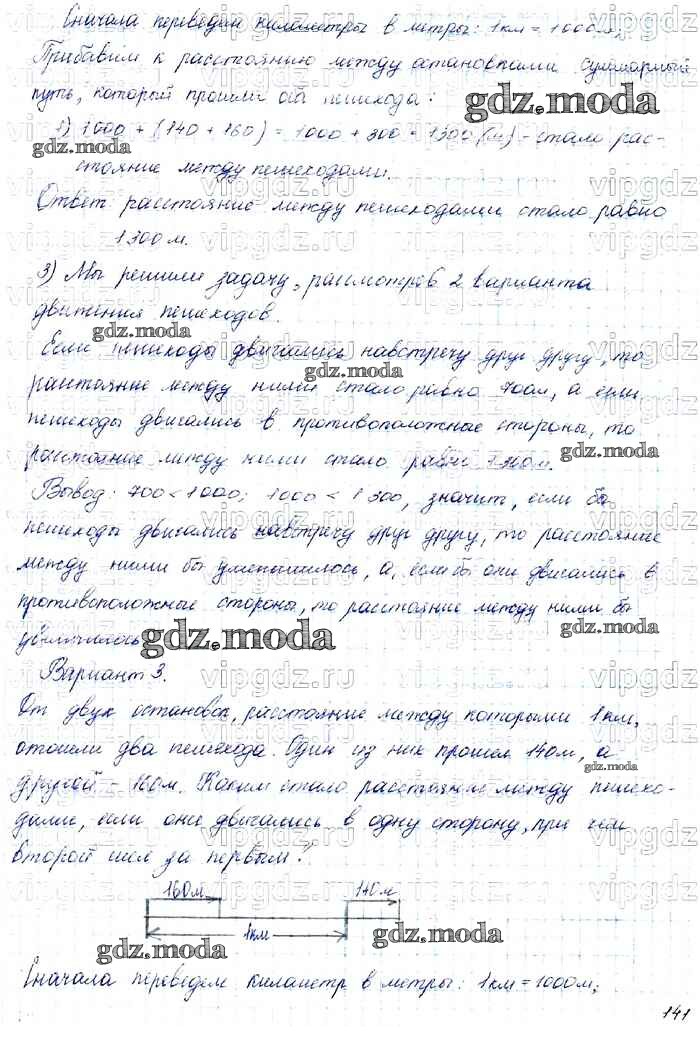 Сначала переведём километры в метры: 1км = 1000м;
Прибавим к расстоянию между остановками суммарный
путь, который прошли оба пешехода:
gdz.moda
1) 1000 + (140 + 160) = 1000 + 300 = 1300 (м) - стало рас-
gdz.moda
стояние между пешеходами.
Ответ: расстояние между пешеходами стало равно
1300 м.
3) Мы решили задачу, рассмотрев 2 варианта
движения пешеходов.
gdz.moda
Если пешеходы двигались навстречу друг другу, то
gdz.moda
расстояние между ними стало равно 700м, а если
пешеходы двигались в противоположные стороны, то
расстояние между ними стало равно 1300м.
Вывод: 700 < 1000; 1000 < 1300, значит, если бы
пешеходы двигались навстречу друг другу, то расстояние
между ними бы уменьшилось, а, если бы они двигались в
противоположные стороны, то расстояние между ними бы
увеличилось.
gdz.moda
Вариант 3.
От двух остановок, расстояние между которыми 1км,
отошли два пешехода. Один из них прошел 140м, а
gdz.moda
другой - 160м. Каким стало расстояние между пешехо-
дами, если они двигались в одну сторону, при чем
второй шел за первым?
160м 140м
1км
gdz.moda gdz.moda
Сначала переведем километр в метры: 1км = 1000м;
141
vipgdz.ru